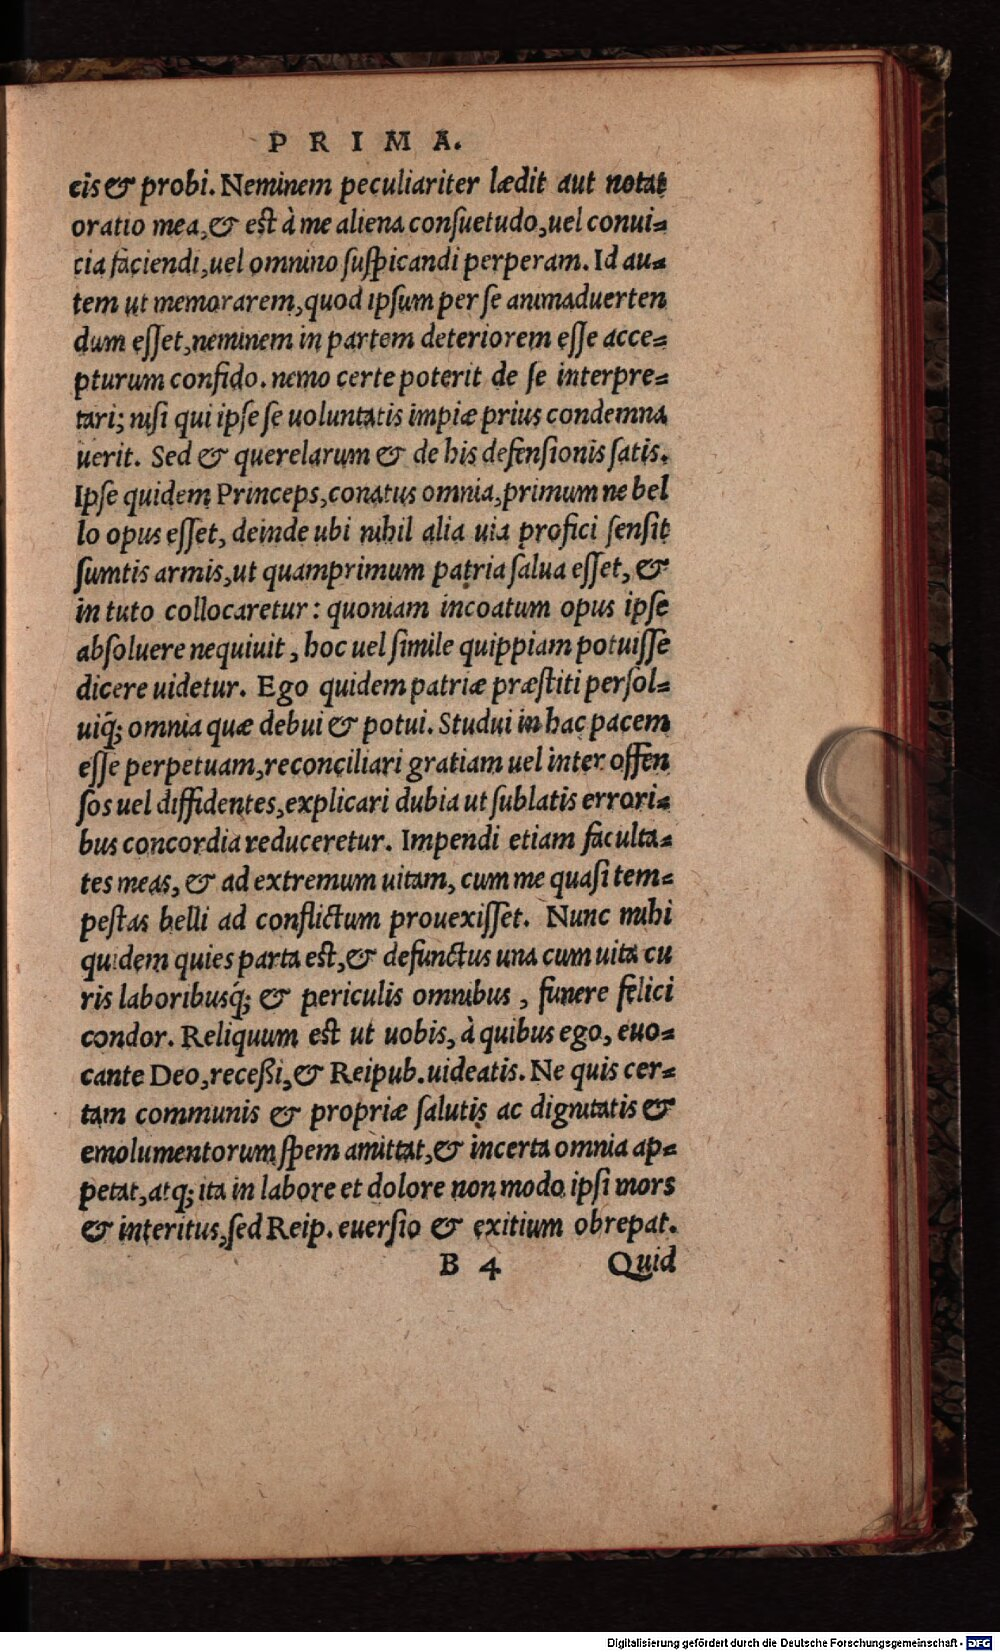 PRIMA.
cis & probi. Neminem peculiariter lædit aut notat
oratio mea, & est à me aliena consuetudo, uel conui-
cia faciendi, uel omnino suspicandi perperam. Id au-
tem ut memorarem, quod ipsum per se animaduerten
dum esset, neminem in partem deteriorem esse acce-
pturum confido. nemo certe poterit de se interpre-
tari; nisi qui ipse se uoluntatis impiæ prius condemna
uerit. Sed & querelarum & de his defensionis satis.
Ipse quidem Princeps, conatus omnia, primum ne bel
lo opus esset, deinde ubi nihil alia uia profici sensit
sumtis armis, ut quamprimum patria salua esset, &
in tuto collocaretur: quoniam incoatum opus ipse
absoluere nequiuit, hoc uel simile quippiam potuisse
dicere uidetur. Ego quidem patriæ præstiti persol-
uiq́; omnia quæ debui & potui. Studui in hac pacem
esse perpetuam, reconciliari gratiam uel inter offen
sos uel diffidentes, explicari dubia ut sublatis errori-
bus concordia reduceretur. Impendi etiam faculta-
tes meas, & ad extremum uitam, cum me quasi tem-
pestas belli ad conflictum prouexisset. Nunc mihi
quidem quies parta est, & defunctus una cum uita cu
ris laboribusq́; & periculis omnibus, funere felici
condor. Reliquum est ut uobis, à quibus ego, euo-
cante Deo, recessi, & Reipub. uideatis. Ne quis cer-
tam communis & propriæ salutis ac dignitatis &
emolumentorum spem amittat, & incerta omnia ap-
petat, atq; ita in labore et dolore non modo ipsi mors
& interitus, sed Reip. euersio & exitium obrepat.
B 4 Quid
Digitalisierung gefördert durch die Deutsche Forschungsgemeinschaft - DFG